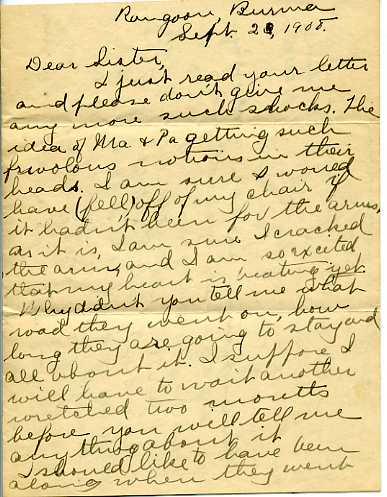 Rangoon, Burma
Sept. 20, 1908.
Dear Sister,
I just read your letter
and please don't give me
any more such shocks. The
idea of Ma & Pa getting such
frivolous notions in their
heads. I am sure I would
have (fell) off of my chair if
it hadn't been for the arms,
as it is, I am sure I cracked
the arm, and I am so excited
that my heart is beating yet.
Why didn't you tell me what
road they went on, how
long they are going to stay and
all about it. I suppose I
will have to wait another
wretched two months
before you will tell me
anything about it.
I should like to have been
along when they went